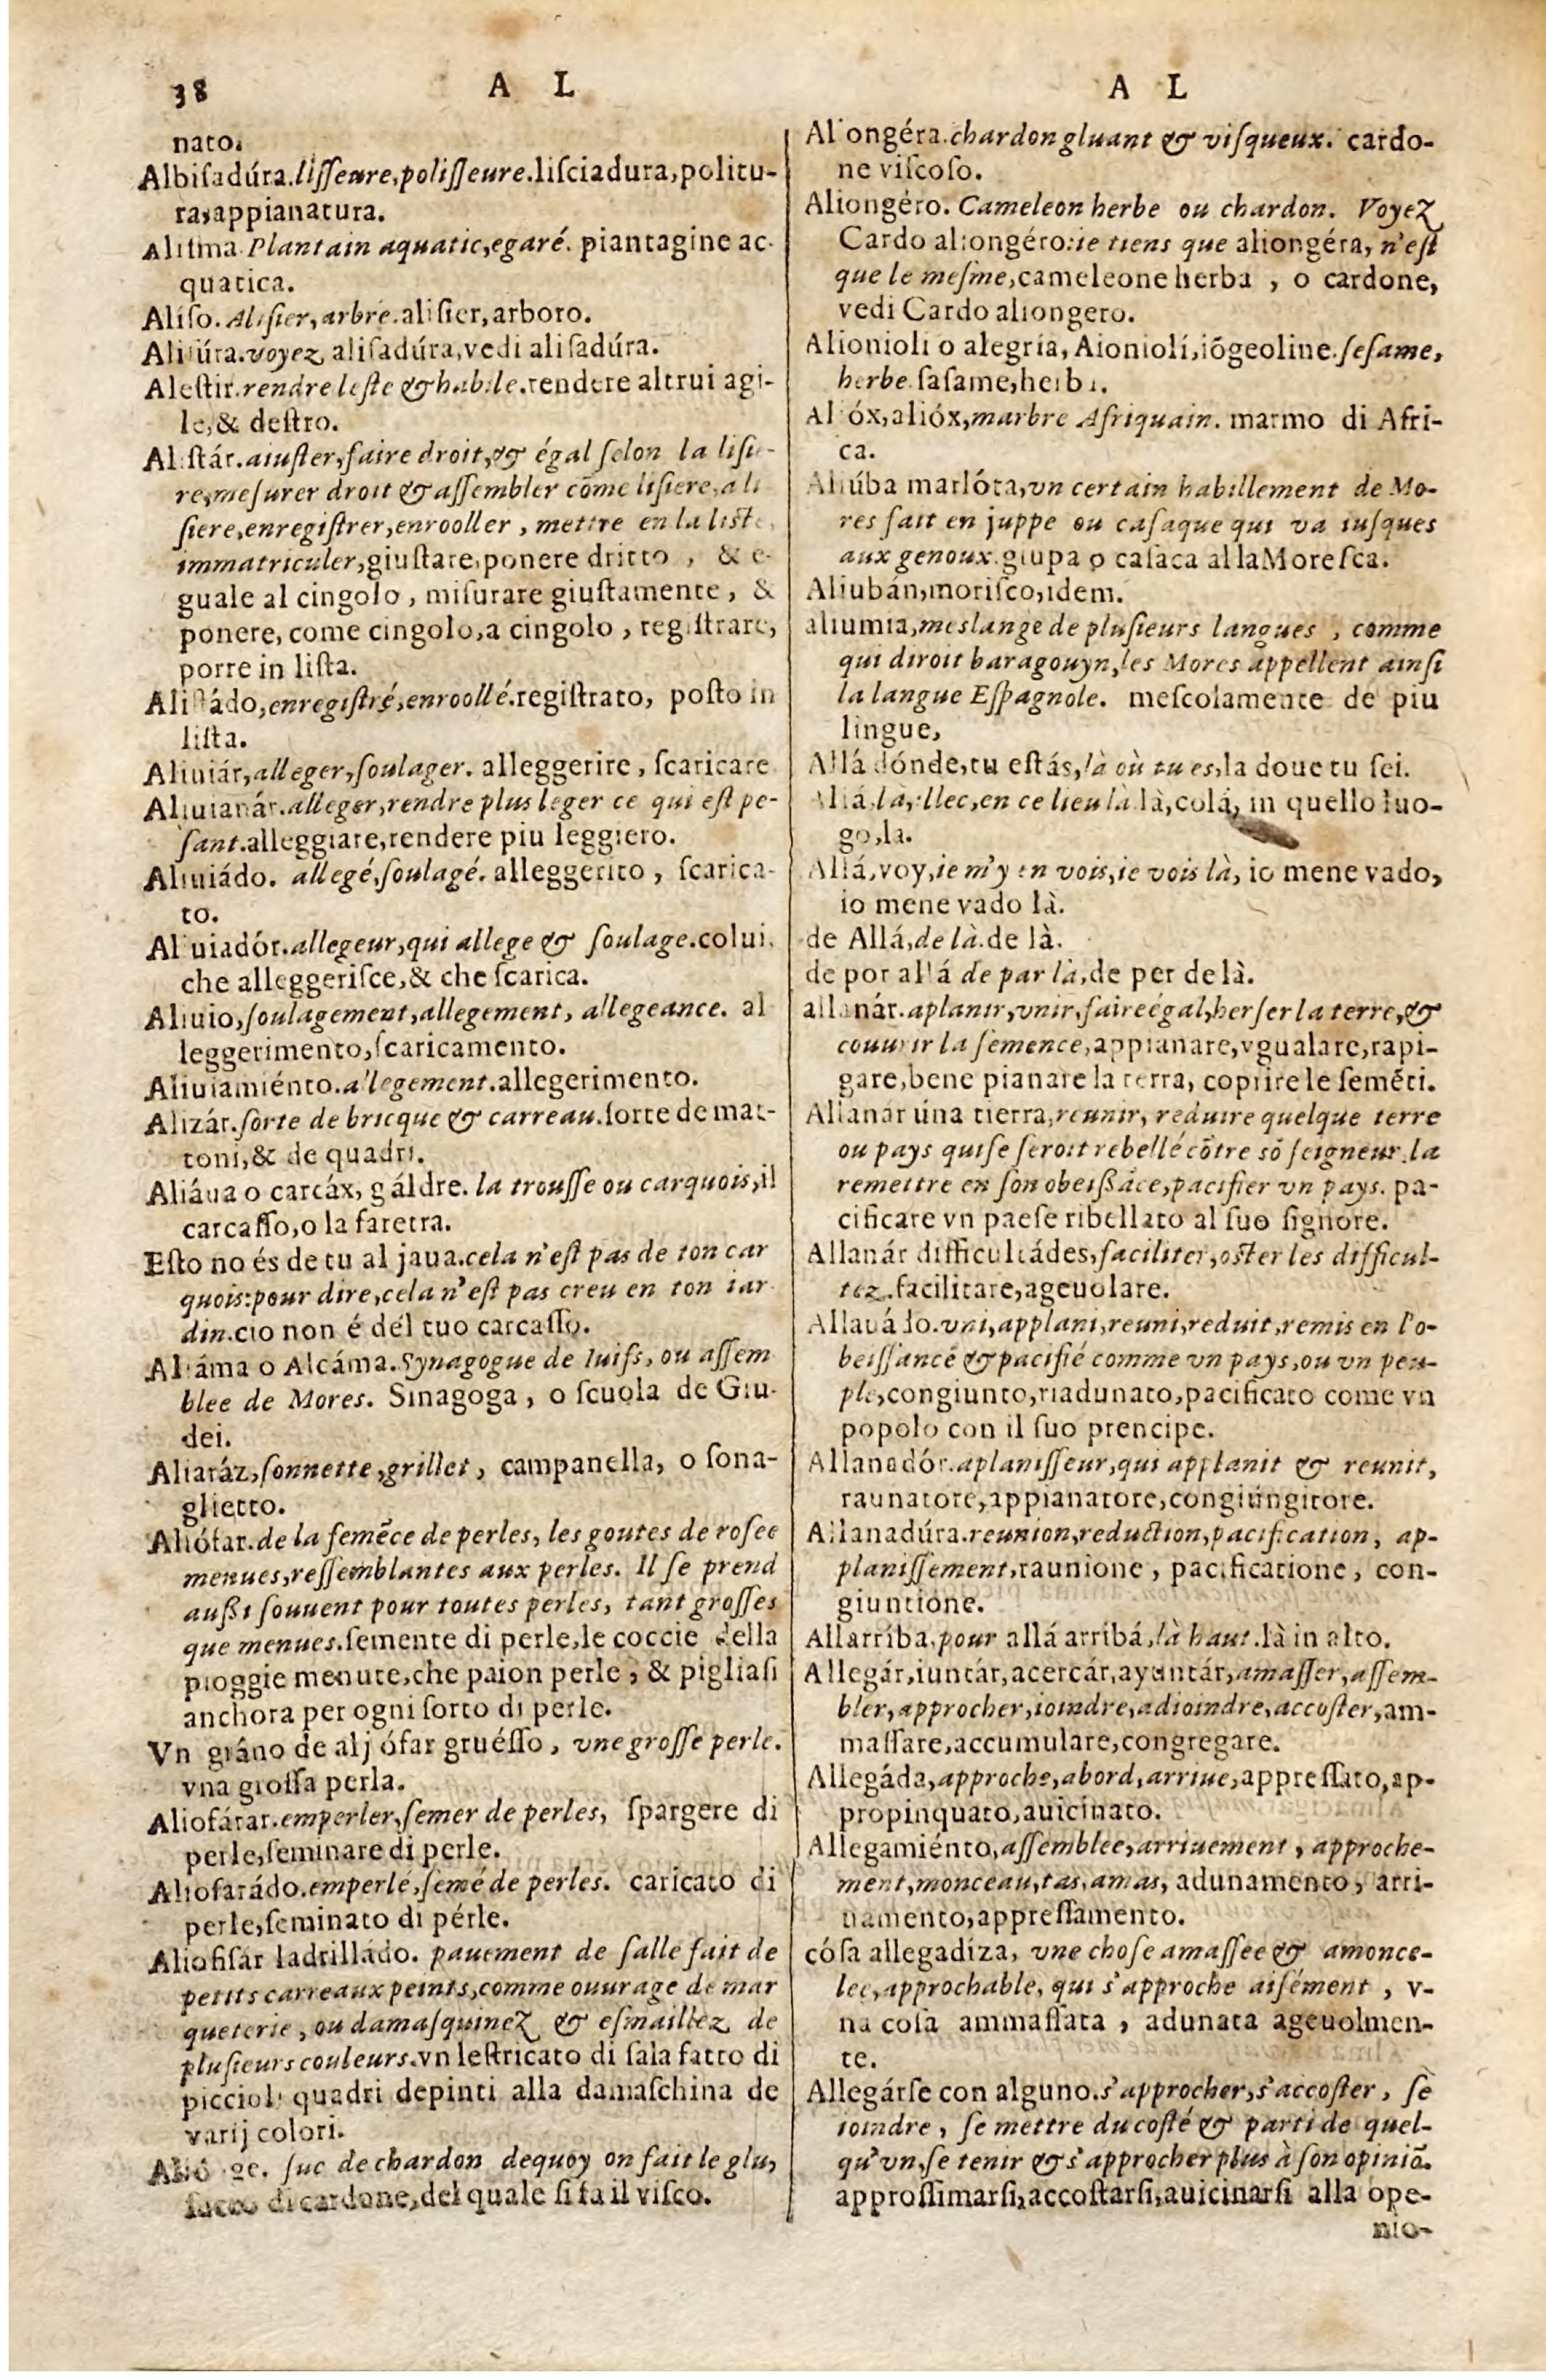 38 A L
nato.
Albiſadúra.liſſeure,poliſſeure.liſciadura,politu-
ra,appianatura.
Aliſma.Plantain aquatic,egaré. piantagine ac-
quatica.
Aliſo.Aliſier,arbre.aliſier,arboro.
Aliſúra.voyez aliſadúra,vedi aliſadúra.
Aleſtir.rendre leſte & habile.rendere altrui agi-
le,& deſtro.
Aliſtár.aiuſter,faire droit,& égal ſelon la liſie-
re,meſurer droit & aſſembler cõme liſiere,a li
ſiere,enregiſtrer,enrooller, mettre en la liste,
immatriculer,giuſtare,ponere dritto, & e-
guale al cingolo, miſurare giuſtamente, &
ponere, come cingolo,a cingolo, regiſtrare,
porre in liſta.
Aliſtádo,enregiſtré,enroollé.regiſtrato, poſto in
liſta.
Aliuiár,alleger,ſoulager. alleggerire, ſcaricare
Aliuianár.alleger,rendre plus leger ce qui eſt pe-
ſant.alleggiare,rendere piu leggiero.
Aliuiádo. allegé,ſoulagé. alleggerito, ſcarica-
to.
Aliuiadór.allegeur,qui allege & ſoulage.colui,
che alleggeriſce,& che ſcarica.
Aliuio,ſoulagement,allegement, allegeance. al
leggerimento,ſcaricamento.
Aliuiamiénto.allegement.allegerimento.
Alizár.ſorte de bricque & carreau.ſorte de mat-
toni,& de quadri.
Aliáua o carcáx, gáldre. la trouſſe ou carquois,il
carcaſſo,o la faretra.
Eſto no és de tu al jaua.cela n'eſt pas de ton car
quois:pour dire,cela n'eſt pas creu en ton iar
din.cio non é del tuo carcaſſo.
Aliáma o Alcáma.Synagogue de Iuifs, ou aſſem
blee de Mores. Sinagoga, o ſcuola de Giu-
dei.
Aliaráz,ſonnette,grillet, campanella, o ſona-
glietto.
Aliófar.de la ſemẽce de perles, les goutes de roſee
menues,reſſemblantes aux perles. Il ſe prend
außi ſouuent pour toutes perles, tant groſſes
que menues.ſemente di perle,le coccie della
pioggie menute,che paion perle, & pigliaſi
anchora per ogni ſorto di perle.
Vn gráno de alj ófar gruéſſo, vne groſſe perle.
vna groſſa perla.
Aliofárar.emperler,ſemer de perles, ſpargere di
perle,ſeminare di perle.
Aliofarádo.emperlé,ſemé de perles. caricato di
perle,ſeminato di pérle.
Aliofiſar ladrilládo. pauement de ſalle fait de
petits carreaux peints,comme ouurage de mar
queterie, ou damaſquinez & eſmaillez de
pluſieurs couleurs.vn leſtricato di ſala fatto di
piccioli quadri depinti alla damaſchina de
varij colori.
ſuc de chardon dequoy on fait le glu,
ſucco di cardone,del quale ſi fa il viſco.
A L
Aliongéra.chardon gluant & viſqueux. cardo-
ne viſcoſo.
Aliongéro. Cameleon herbe ou chardon. Voyez
Cardo aliongéro:ie tiens que aliongéra, n'eſt
que le meſme,cameleone herba, o cardone,
vedi Cardo aliongero.
Alionioli o alegría, Aioniolí,iõgeoline.ſeſame,
herbe.ſaſame,herba.
Alióx,alióx,marbre Afriquain. marmo di Afri-
ca.
Aliúba marlóta,vn certain habillement de Mo-
res fait en juppe ou caſaque qui va iuſques
aux genoux.giupa o caſaca alla Moreſca.
Aliubán,moriſco,idem.
aliumia,meslange de pluſieurs langues, comme
qui diroit baragouyn,les Mores appellent ainſi
la langue Eſpagnole. meſcolamente de piu
lingue,
Allá dónde,tu eſtás,là où tu es,la doue tu ſei.
Allá,là,illec,en ce lieu là.là,colá, in quello luo-
go,la.
Allá,voy,ie m'y en vois,ie vois là, io mene vado,
io mene vado là.
de Allá,de là.de là.
de por allá de par là,de per de là.
allanár.aplanir,vnir,faire égal,herſer la terre,&
couurir la ſemence,appianare,vgualare,rapi-
gare,bene pianare la terra, coprire le ſemẽti.
Allanár úna tierra,reunir, reduire quelque terre
ou pays qui ſe ſeroit rebellé cõtre sõ ſeigneur,la
remettre en ſon obeißãce,pacifier vn pays. pa-
cificare vn paeſe ribellato al ſuo ſignore.
Allanár difficultádes,faciliter,oſter les difficul-
tez.facilitare,ageuolare.
Allanádo.vni,applani,reuni,reduit,remis en l'o-
beiſſance & pacifié comme vn pays,ou vn peu-
ple,congiunto,riadunato,pacificato come vn
popolo con il ſuo prencipe.
Allanadór.aplaniſſeur,qui applanit & reunit,
raunatore,appianatore,congiungitore.
Allanadúra.reunion,reduction,pacification, ap-
planiſſement,raunione, pacificatione, con-
giuntione.
Allarríba,pour allá arribá,là haut.là in alto.
Allegár,iuntár,acercár,ayuntár,amaſſer,aſſem-
bler,approcher,ioindre,adioindre,accoſter,am-
maſſare,accumulare,congregare.
Allegáda,approche,abord,arriue,appreſſato,ap-
propinquato,auicinato.
Allegamiénto,aſſemblee,arriuement, approche-
ment,monceau,tas,amas, adunamento, arri-
uamento,appreſſamento.
cóſa allegadíza, vne choſe amaſſee & amonce-
lee,approchable, qui s'approche aiſément, v-
na coſa ammaſſata, adunata ageuolmen-
te.
Allegárſe con alguno.s'approcher,s'accoſter, ſe
ioindre, ſe mettre du coſté & parti de quel-
qu'vn,ſe tenir & s'approcher plus à ſon opiniõ.
approſſimarſi,accoſtarſi,auicinarſi alla ope-
nio-